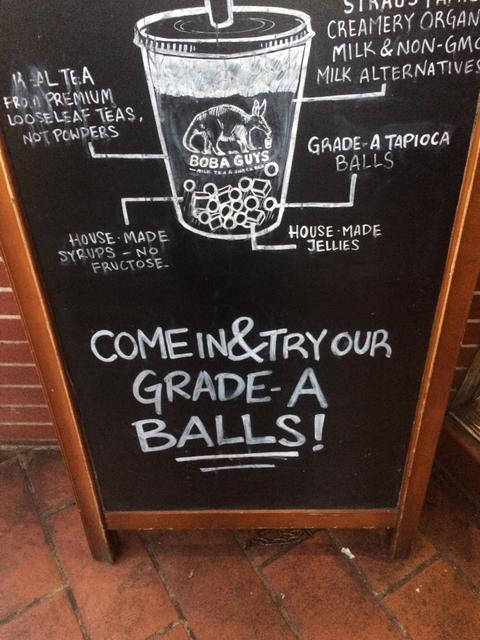 STRAUS FAMILY
CREAMERY ORGAN
MILK & NON-GMO
MILK ALTERNATIVES
REAL TEA
FROM PREMIUM
LOOSELEAF TEAS,
NOT POWDERS
BOBA GUYS
MILK TEA & SNACK BAR
GRADE-A TAPIOCA
BALLS
HOUSE-MADE
SYRUPS - NO
FRUCTOSE
HOUSE-MADE
JELLIES
COME IN & TRY OUR
GRADE-A
BALLS!